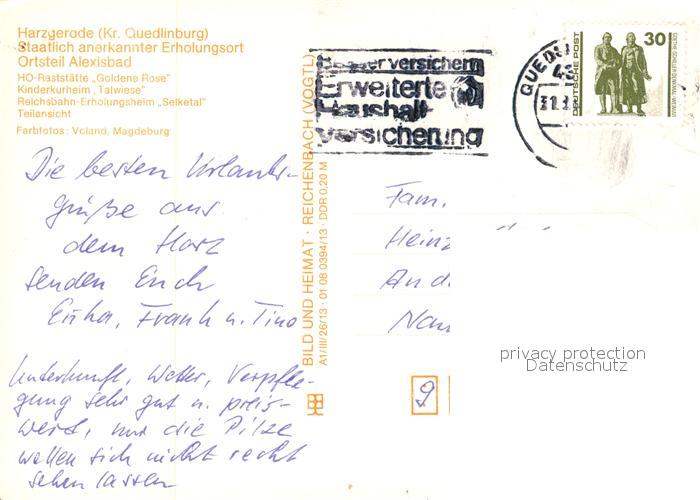 Harzgerode (Kr. Quedlinburg)
Staatlich anerkannter Erholungsort
Ortsteil Alexisbad
HO-Raststätte „Goldene Rose"
Kinderkurheim „Talwiese"
Reichsbahn-Erholungsheim „Selketal"
Teilansicht
Farbfotos: Voland, Magdeburg
Die besten Urlaubs-
grüße aus
dem Harz
senden Euch
Frank u. Tino
Unterkunft, Wetter, Verpfle-
gung sehr gut u. preis-
wert, nur die Pilze
wollen sich nicht recht
sehen lassen
BILD UND HEIMAT · REICHENBACH (VOGTL)
A1/III/26/13 · 01 08 0394/13 · DDR 0,20 M
Besser versichern
Erweiterte
Haushalt-
versicherung
QUEDL
43
31.
DEUTSCHE POST
30
GOETHE-SCHILLER-DENKMAL · WEIMAR
Fam.
Heinz
And
Nau
9
privacy protection
Datenschutz